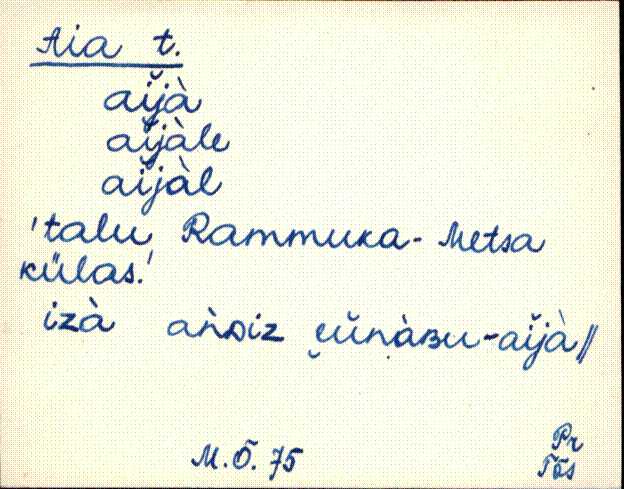 Aia t.
aĭjà
aĭjàle
aĭjàl
'talu Rammuka-Metsa
külas.'
izà aǹᴅiz ŭnàʙu-aĭjà //
M.Õ. 75
Pr
Tõs